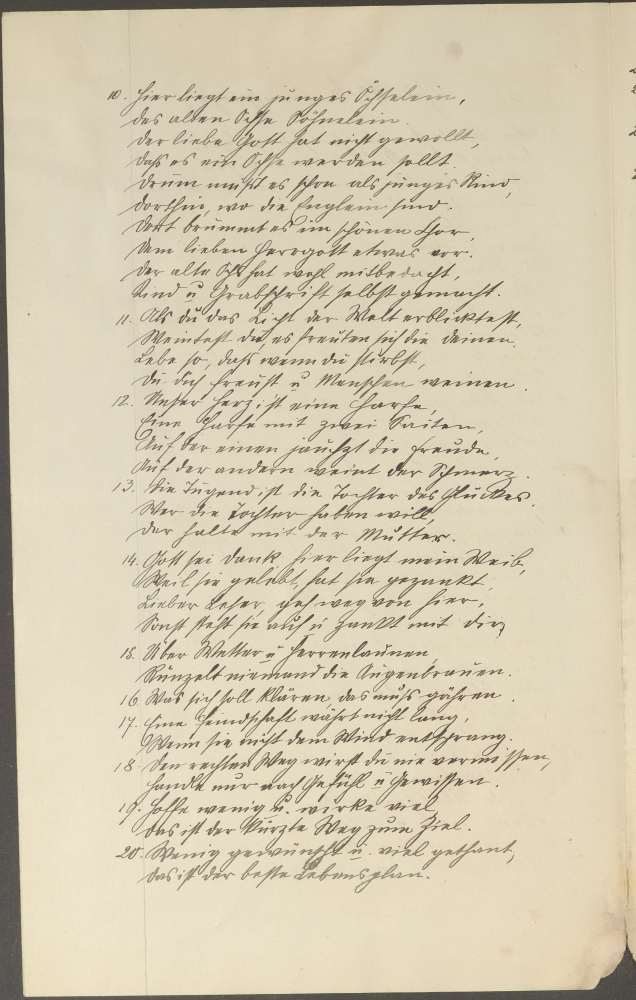 10. Hier liegt ein junges Öchselein,
des alten Ochse Söhnelein.
Der liebe Gott hat nicht gewollt,
daß es ein Ochse werden sollt.
Drum mußt es schon als junges Rind,
dorthin, wo die Englein sind.
Dort brummt es im schönen Chor,
dem lieben Herrgott etwas vor.
Der alte Ochs hat wohl mitbedacht,
Kind u Grabschrift selbst gemacht.
11. Als du das Licht der Welt erblicktest,
Weintest du, es freuten sich die deinen.
Lebe so, daß wenn du stirbst,
Du dich freust u Menschen weinen.
12. Unser Herz ist eine Harfe,
Eine Harfe mit zwei Saiten,
Auf der einen jauchzt die Freude,
Auf der andern weint der Schmerz.
13. Die Tugend ist die Tochter des Glückes.
Wer die Tochter haben will,
der halte mit der Mutter.
14. Gott sei Dank, hier liegt mein Weib,
Weil sie gelebt, hat sie gezankt,
Lieber Leser, geh weg von hier,
Sonst steht sie auf u zankt mit dir
15. Über Wetter u Herrenlaunen,
Runzelt niemand die Augenbrauen.
16. Was sich soll klären, das muß gähren.
17. Eine Feindschaft währt nicht lang,
Wenn sie nicht dem Wind entsprang.
18. Den rechten Weg wirst du nie vermissen,
Handle nur nach Gefühl u Gewissen.
19. Hoffe wenig u. wirke viel
Das ist der kürzte Weg zum Ziel.
20. Wenig gewünscht u. viel gethant,
Das ist der beste Lebensplan.